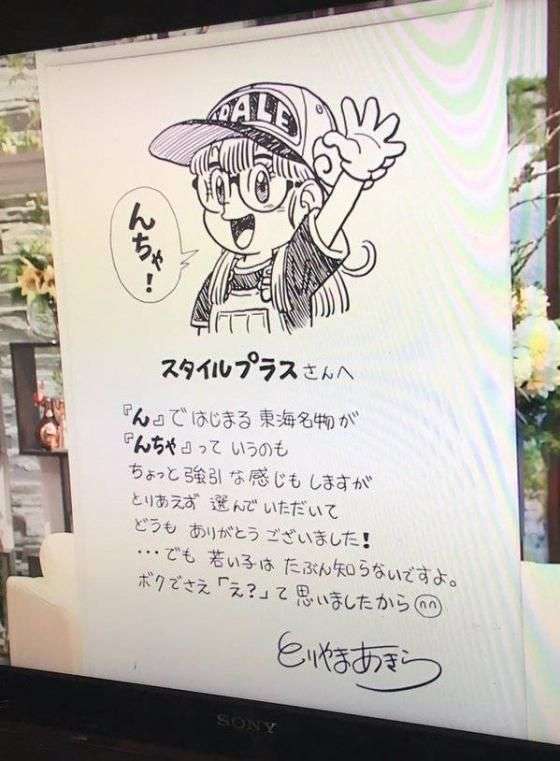 DALE
んちゃ!
スタイルプラスさんへ
『ん』ではじまる東海名物が
『んちゃ』っていうのも
ちょっと強引な感じもしますが
とりあえず選んでいただいて
どうもありがとうございました!
…でも若い子はたぶん知らないですよ。
ボクでさえ「え?」て思いましたから
とりやまあきら
SONY